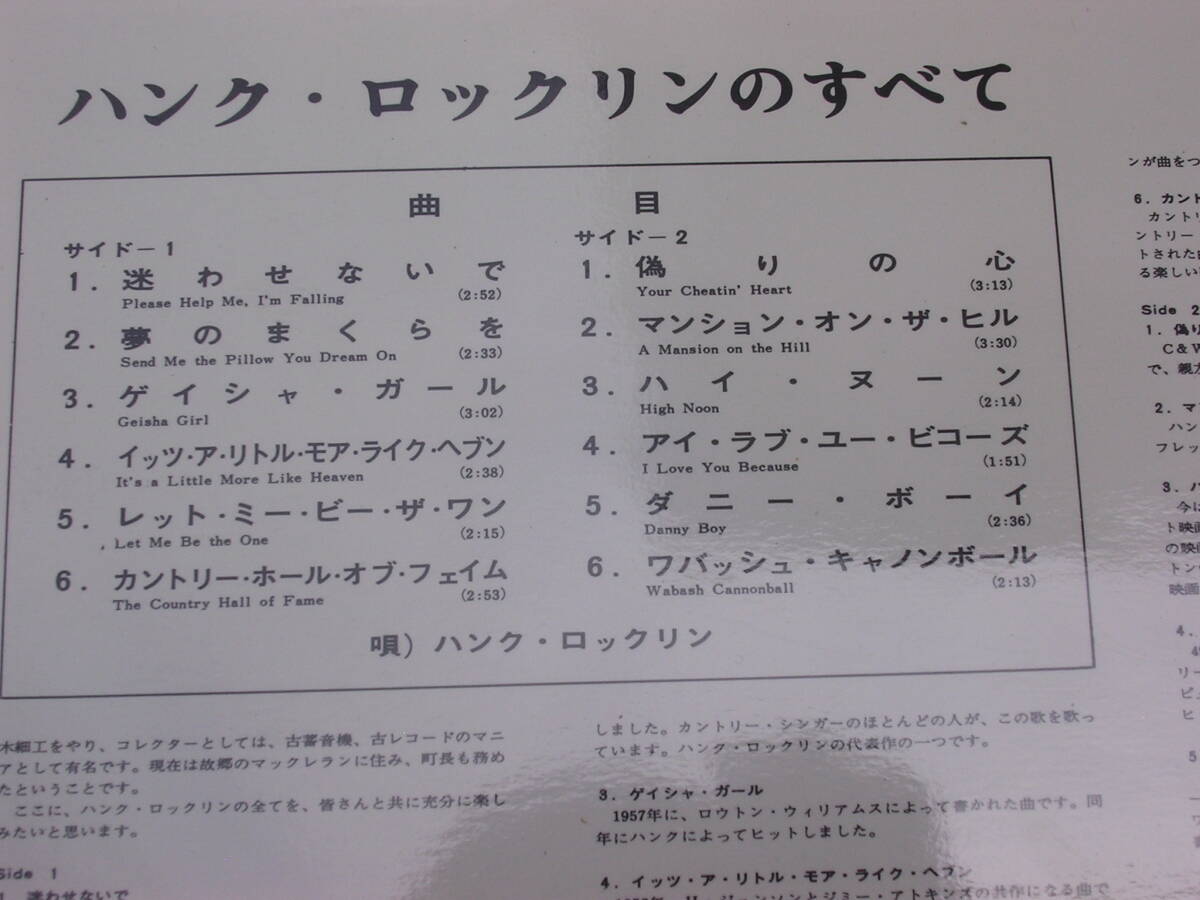 ハンク・ロックリンのすべて
曲目
サイド－1
1. 迷わせないで
Please Help Me, I'm Falling (2:52)
2. 夢のまくらを
Send Me the Pillow You Dream On (2:33)
3. ゲイシャ・ガール
Geisha Girl (3:02)
4. イッツ・ア・リトル・モア・ライク・ヘブン
It's a Little More Like Heaven (2:38)
5. レット・ミー・ビー・ザ・ワン
Let Me Be the One (2:15)
6. カントリー・ホール・オブ・フェイム
The Country Hall of Fame (2:53)
サイド－2
1. 偽りの心
Your Cheatin' Heart (3:13)
2. マンション・オン・ザ・ヒル
A Mansion on the Hill (3:30)
3. ハイ・ヌーン
High Noon (2:14)
4. アイ・ラブ・ユー・ビコーズ
I Love You Because (1:51)
5. ダニー・ボーイ
Danny Boy (2:36)
6. ワバッシュ・キャノンボール
Wabash Cannonball (2:13)
唄）ハンク・ロックリン
木細工をやり、コレクターとしては、古蓄音機、古レコードのマニ
アとして有名です。現在は故郷のマックレランに住み、町長も務め
たということです。
ここに、ハンク・ロックリンの全てを、皆さんと共に充分に楽し
みたいと思います。
Side 1
1. 迷わせないで
しました。カントリー・シンガーのほとんどの人が、この歌を歌っ
ています。ハンク・ロックリンの代表作の一つです。
3. ゲイシャ・ガール
1957年に、ロウトン・ウィリアムスによって書かれた曲です。同
年にハンクによってヒットしました。
4. イッツ・ア・リトル・モア・ライク・ヘブン
ンソンとジミー・アトキンズの共作になる曲で
ンが曲をつ
6. カント
カントリ
ントリー
トされた
る楽しい
Side 2
1. 偽り
C＆W
で、親
2. マ
ハン
フレッ
3. ハ
今は
ト映画
の映画
トン
映画
4.
リー
ビ
ヒ
5